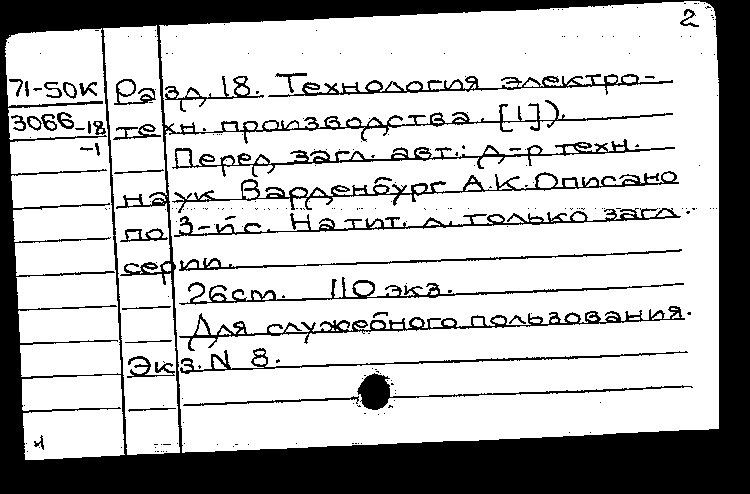 2
71-50К Разд. 18. Технология электро-
3066-18 техн. производства. [1]).
-1 Перед загл. авт.: д-р техн.
наук Варденбург А.К. Описано
по 3-й с. На тит. л. только загл.
серии.
26 см. 110 экз.
Для служебного пользования.
Экз. N 8.
и